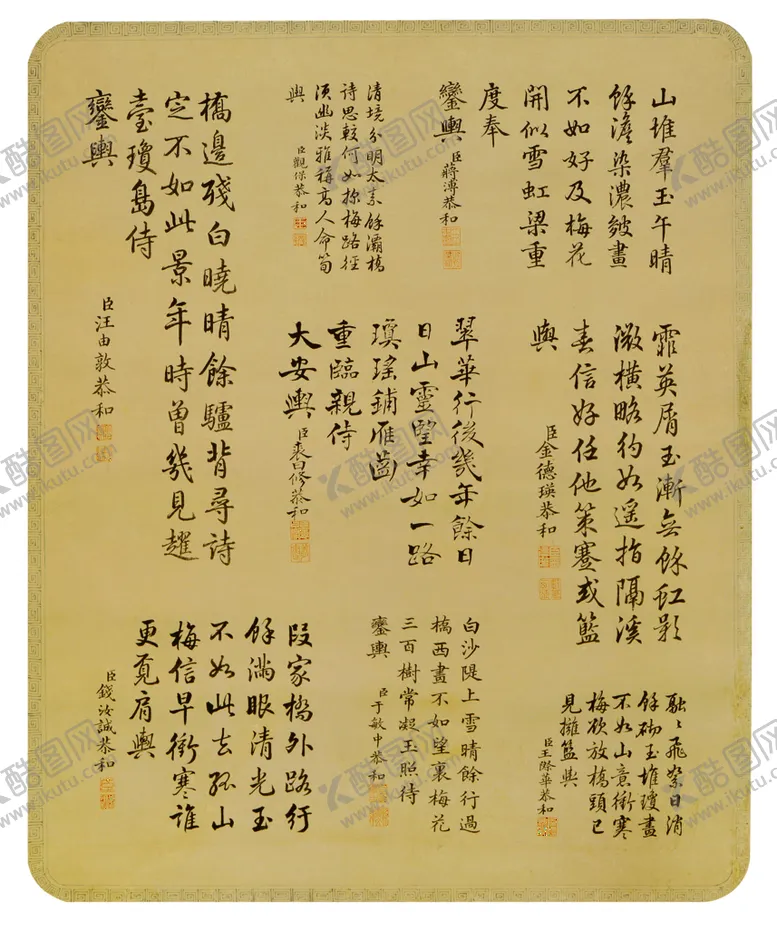 山堆羣玉午晴
餘澹染濃皴畫
不如好及梅花
開似雪虹梁重
度奉
鑾輿 臣蔣溥恭和
清境分明太素餘灞橋
詩思較何如探梅路徑
須幽淡雅稱高人命筍
輿
臣觀保恭和
橋邊殘白曉晴餘驢背尋詩
定不如此景年時曾幾見趯
臺瓊島侍
鑾輿
臣汪由敦恭和
霏英屑玉漸無餘虹影
微橫略彴如遥指隔溪
春信好任他策蹇或籃
輿
臣金德瑛恭和
翠華行後幾年餘日
日山靈望幸如一路
瓊瑤鋪雁齒
重臨親侍
大安輿 臣裘曰修恭和
融〻飛絮日消
餘砌玉堆瓊畫
不如山意衝寒
梅欲放橋頭已
見擁籃輿
臣王際華恭和
白沙隄上雪晴餘行過
橋西畫不如望裏梅花
三百樹常凝玉照待
鑾輿
臣于敏中恭和
段家橋外路行
餘滿眼清光玉
不如此去孤山
梅信早衝寒誰
更覓肩輿
臣錢汝誠恭和
酷图网
www.ikutu.com